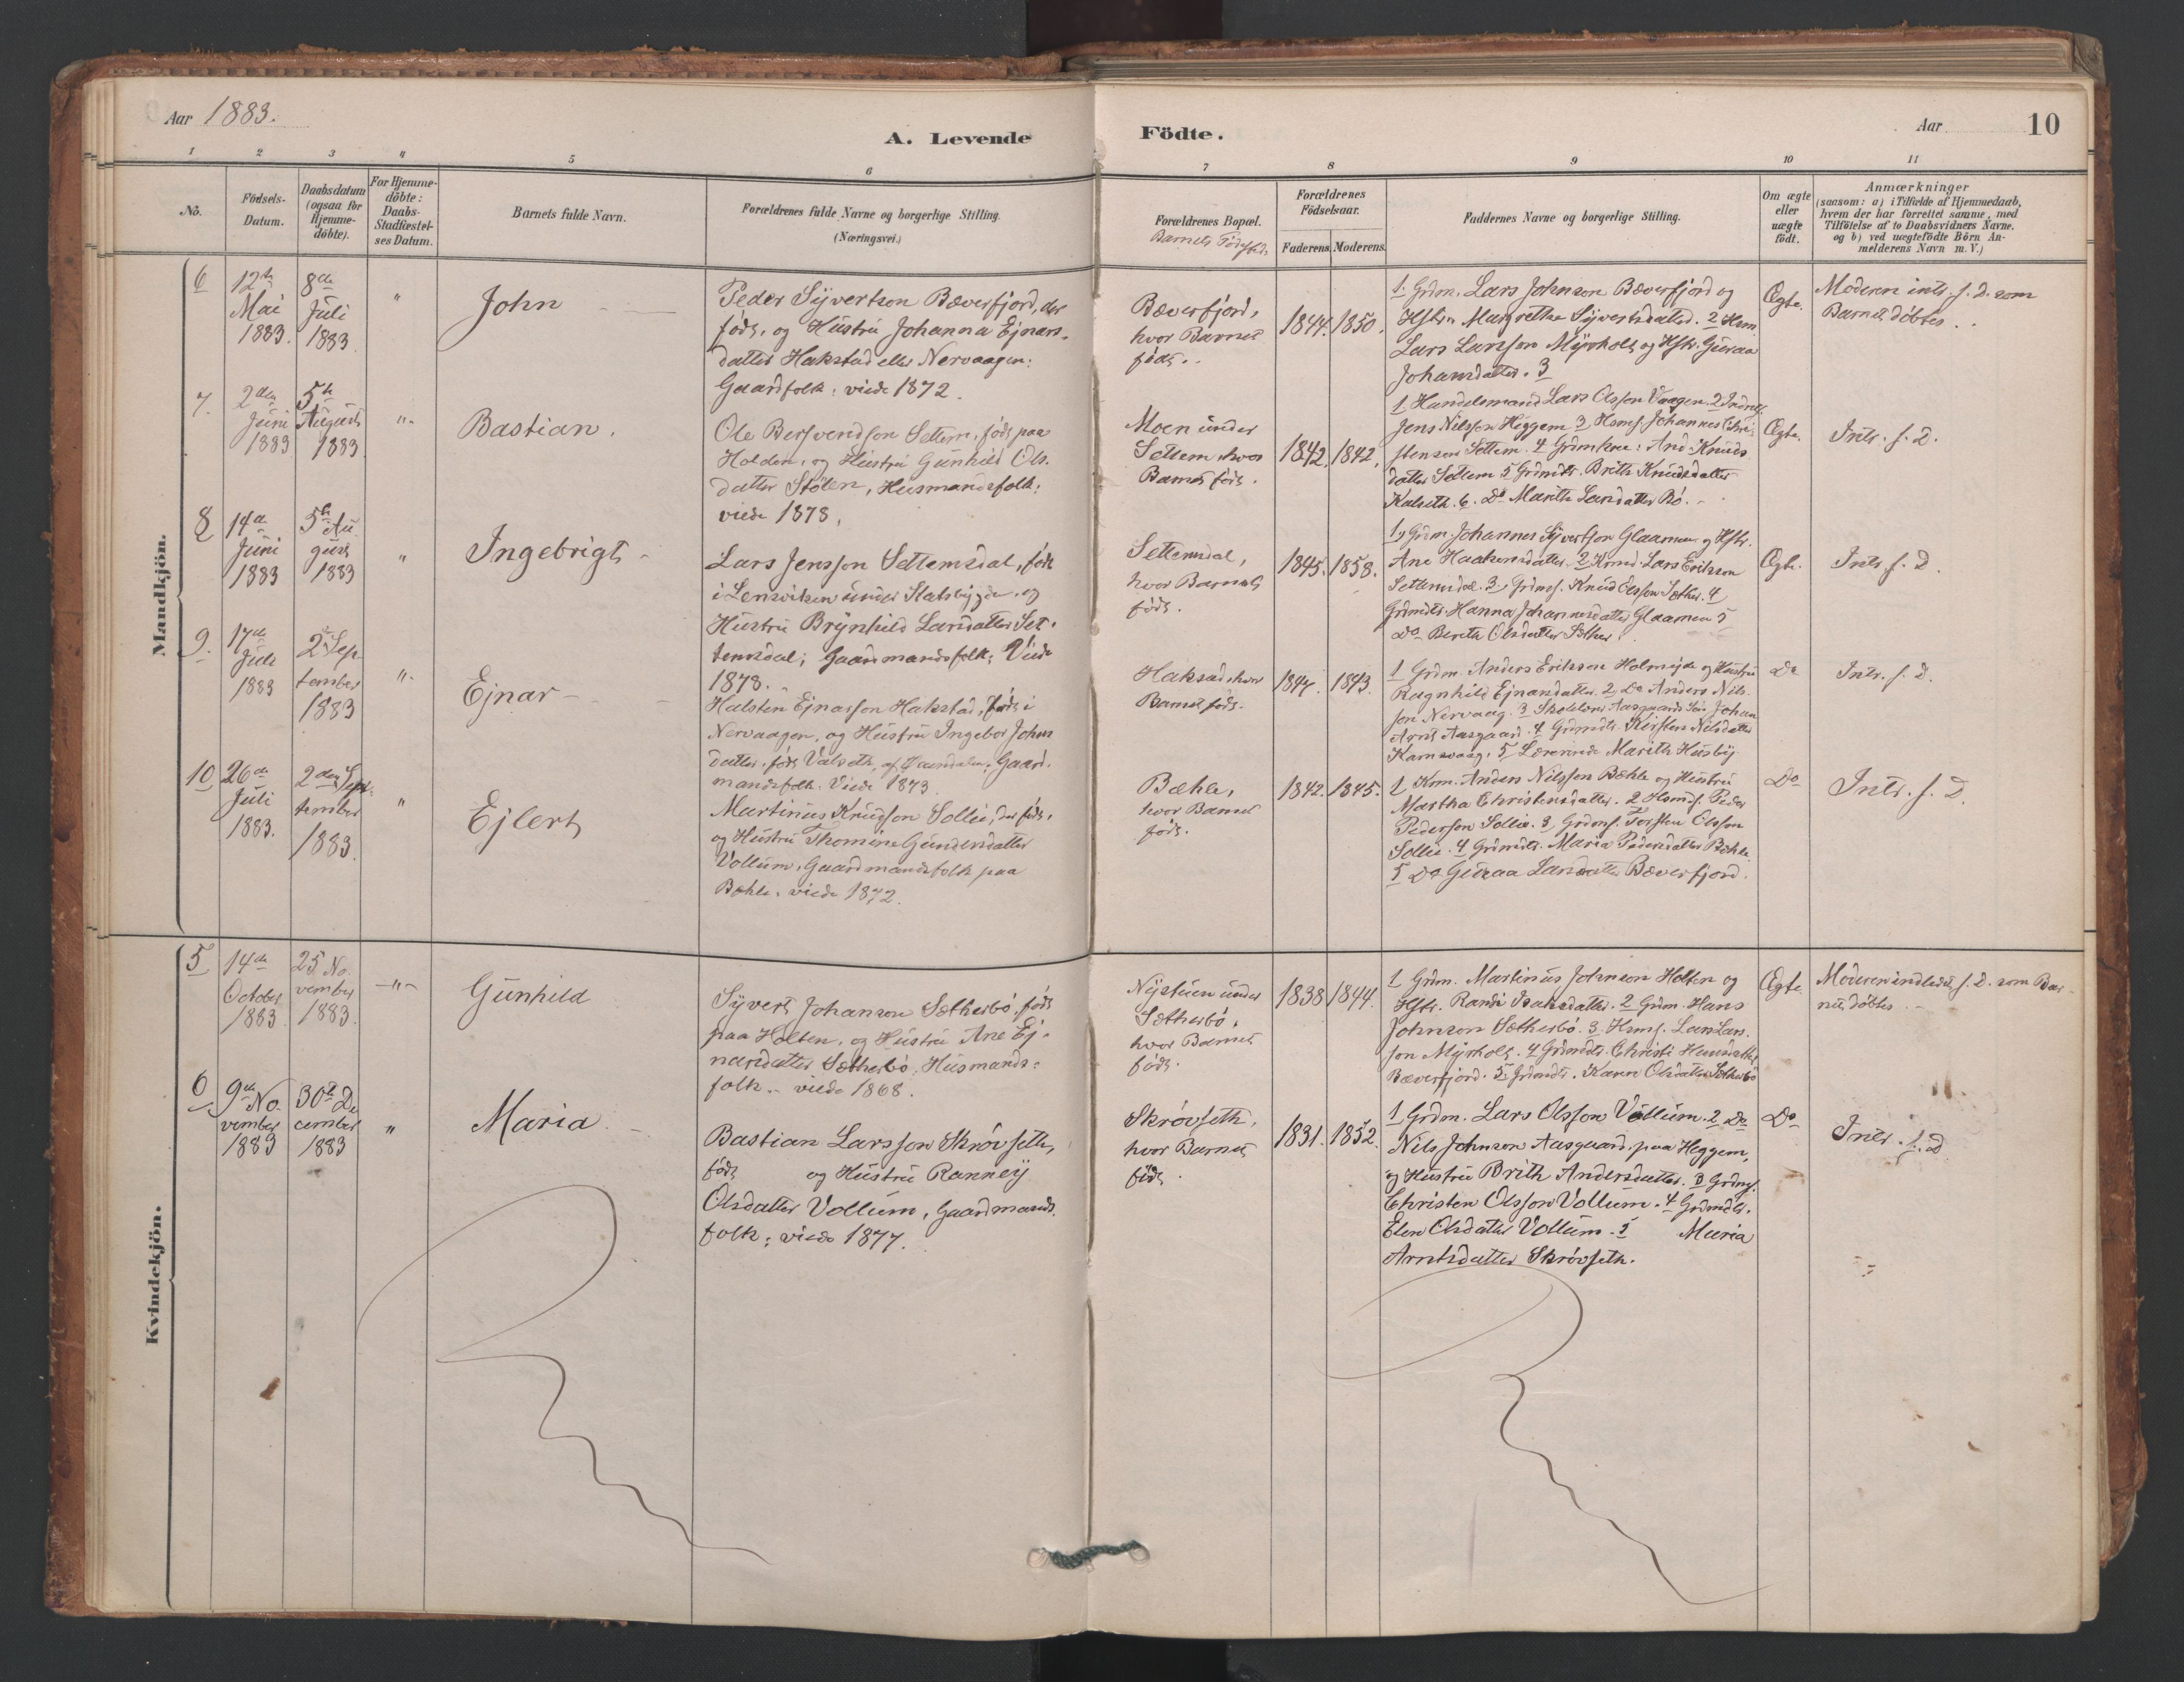 Aar 1883.
A. Levende Födte.
Aar
10
1 2 3 4 5 6 7 8 9 10 11
No.
Födsels-
Datum.
Daabsdatum
(ogsaa for
Hjemme-
döbte).
For Hjemme-
döbte:
Daabs-
Stadfæstel-
ses Datum.
Barnets fulde Navn.
Forældrenes fulde Navne og borgerlige Stilling.
(Næringsvei.)
Forældrenes Bopæl.
Barnets Fødested.
Forældrenes
Födselsaar.
Faderens. Moderens.
Faddernes Navne og borgerlige Stilling.
Om ægte
eller
uægte
födt.
Anmærkninger
(saasom: a) i Tilfælde af Hjemmedaab,
hvem der har forrettet samme, med
Tilföielse af to Daabsvidners Navne.
og b) ved uægtefödte Börn An-
melderens Navn m. V.)
Mandkjön.
6
12te
Mai
1883.
8de
Juli
1883
"
John
Peder Syvertson Bæverfjord, der
født, og Hustru Johanna Ejnars-
datter Hakstad eller Nervaagen:
Gaardfolk: viede 1872.
Bæverfjord,
hvor Barnet
født.
1844. 1850.
1. Grdm. Lars Johnson Bæverfjord og
Hstr. Margrethe Syvertsdatter. 2 Hsm.
Lars Larsson Myrholt og Hstr. Guraa
Johansdatter. 3
Ægte.
Moderen intr. s. D. som
Barnet döbtes.
7.
2den
Juni
1883
5te
August
1883
"
Bastian.
Ole Bersvendson Settem, født paa
Holden, og Hustru Gunhild Ols-
datter Stölen, Husmandsfolk:
viede 1878.
Moen under
Settem, hvor
Barnet født.
1842. 1842,
1 Handelsmand Lars Olsson Vaagen. 2
Jens Nilsson Heggem 3 Hsms. Johannes Chri-
stensen Settem. 4 Grdmkone: And Knuds-
datter Settem 5 Grdmdtr. Brith Knudsdatter
Kalseth. 6. Do Marith Larsdatter Bö.
Ægte.
Intr. s. D.
8
14de
Juni
1883
5te Au-
gust
1883
"
Ingebrigt
Lars Jensson Settemsdal, født
i Lensviken under Statsbygden, og
Hustru Brynhild Larsdatter Set-
temsdal; Gaardmandsfolk; Viede
1878.
Settemsdal,
hvor Barnet
født.
1845. 1858.
1, Grdm. Johannes Syvertson Glaamen og Hstr.
Ane Haakonsdatter. 2 Lars Erikson
Settemsdal. 3, Grdms. Knud Olsson Sæther. 4
Grdmdtr. Hanna Johannesdatter Glaamen 5
Do. Berith Olsdatter Sæther.
Ægte.
Intr. s. D.
9.
17de
Juli
1883
2 Sep-
tember
1883
"
Ejnar
Halsten Ejnarson Hakstad, født i
Nervaagen, og Hustru Ingebor Johns-
datter, født Valseth, af Surendalen; Gaard-
mandsfolk. Viede 1873.
Hakstad, hvor
Barnet født.
1847. 1843.
1 Grdm. Anders Erikson Holmejde og Hustru
Ragnhild Ejnarsdatter. 2 Do Anders Nils-
son Nervaag. 3 Skolelærer Aasgaards Sön Johan
Arnt Aasgaard. 4. Grdmdtr. Kirsten Nilsdatter
Kamsvaag. 5 Lærerinde Marith Husby
Do
Intr. s. D.
10
26de
Juli
1883.
2den Sep-
tember
1883
"
Ejlert
Martinus Knudson Sollie, der født,
og Hustru Thomine Gundersdatter
Vollum, Gaardmandsfolk paa
Bæhle, viede 1872.
Bæhle,
hvor Barnet
født.
1842. 1845.
1 Krm. Anders Nilsson Bæhle og Hustru
Martha Christensdatter. 2 Hsmds. Peder
Pederson Sollie. 3, Grdms. Torsten Olsson
Sollie. 4 Grdmdtr. Maria Pedersdatter Bæhle
5 Do Guraa Larsdatter Bæverfjord.
Do
Intr. s. D.
Kvindekjön.
5
14de
October
1883
25 No-
vember
1883.
"
Gunhild
Syvert Johanson Sætherbö, født
paa Holten, og Hustru Ane Ej-
narsdatter Sætherbö, Husmands-
folk. viede 1868.
Nystuen under
Sætherbö,
hvor Barnet
født.
1838 1844.
1 Grdm. Martinus Johnson Holten og
Hstr. Randi Isaksdatter. 2 Grdm. Hans
Johnson Sætherbö. 3. Hsms. Lars Lars-
son Myrholt. 4 Grdmdtr. Christi Hansdatter
Bæverfjord. 5 Grdmdtr. Karen Olsdatter Sætherbö
Ægte.
Moderen indledet s. D. som Bar-
net döbtes.
6
9de No-
vember
1883
30te De-
cember
1883
"
Maria
Bastian Larsson Skrövseth,
født og Hustru Ranney
Olsdatter Vollum, Gaardmands-
folk; viede 1877.
Skrövseth,
hvor Barnet
født.
1831. 1852.
1 Grdm. Lars Olsson Vollum. 2 Do
Nils Johnson Aasgaard paa Heggem,
og Hustru Brith Andersdatter. 3 Grdms.
Christen Olsson Vollum. 4 Grdmdtr.
Elen Olsdatter Vollum. 5 Maria
Arntsdatter Skrövseth.
Do
Intr. s. D